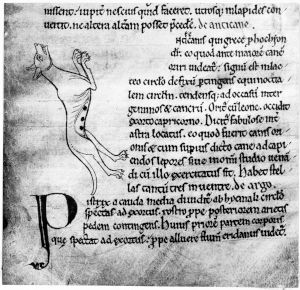 iuppit nesciens quid faceret. utrosq; in lapides con
uertit. ne altera alteram posset pcede. de anticane
Anticanis qui grece phochion
dr. eo quod ante maiore cane
oriri uideat. signu est in lac
teo circlo defixu ptingens equinoctia
lem circlm. tendensq; ad occasu inter
geminos & cancru. Oritur cu leone. occidit
exorto capricorno. Dicit fabulose int
astra locatus. eo quod fuerit canis ori
onis cum supius dicto cane ad capi
endos lepores siue in omni studio uenan
di cu illo exercitatus sit. Habet stel
las tres in uentre. de argo.
Pistrix a cauda media diuidit ab hyemali circlo
spectas ad exortus. rostro ppe posteriorem arietis
pedem contingens. Huius priore partem corporis
que spectat ad exortus. ppe alluere flum eridanus uidet.